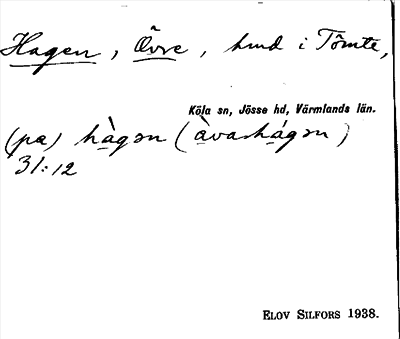 Hagen, Övre, hmd i Tômte,
Köla sn, Jösse hd, Värmlands län.
(pa) hàgən (àvarhágən)
31:12
ELOV SILFORS 1938.